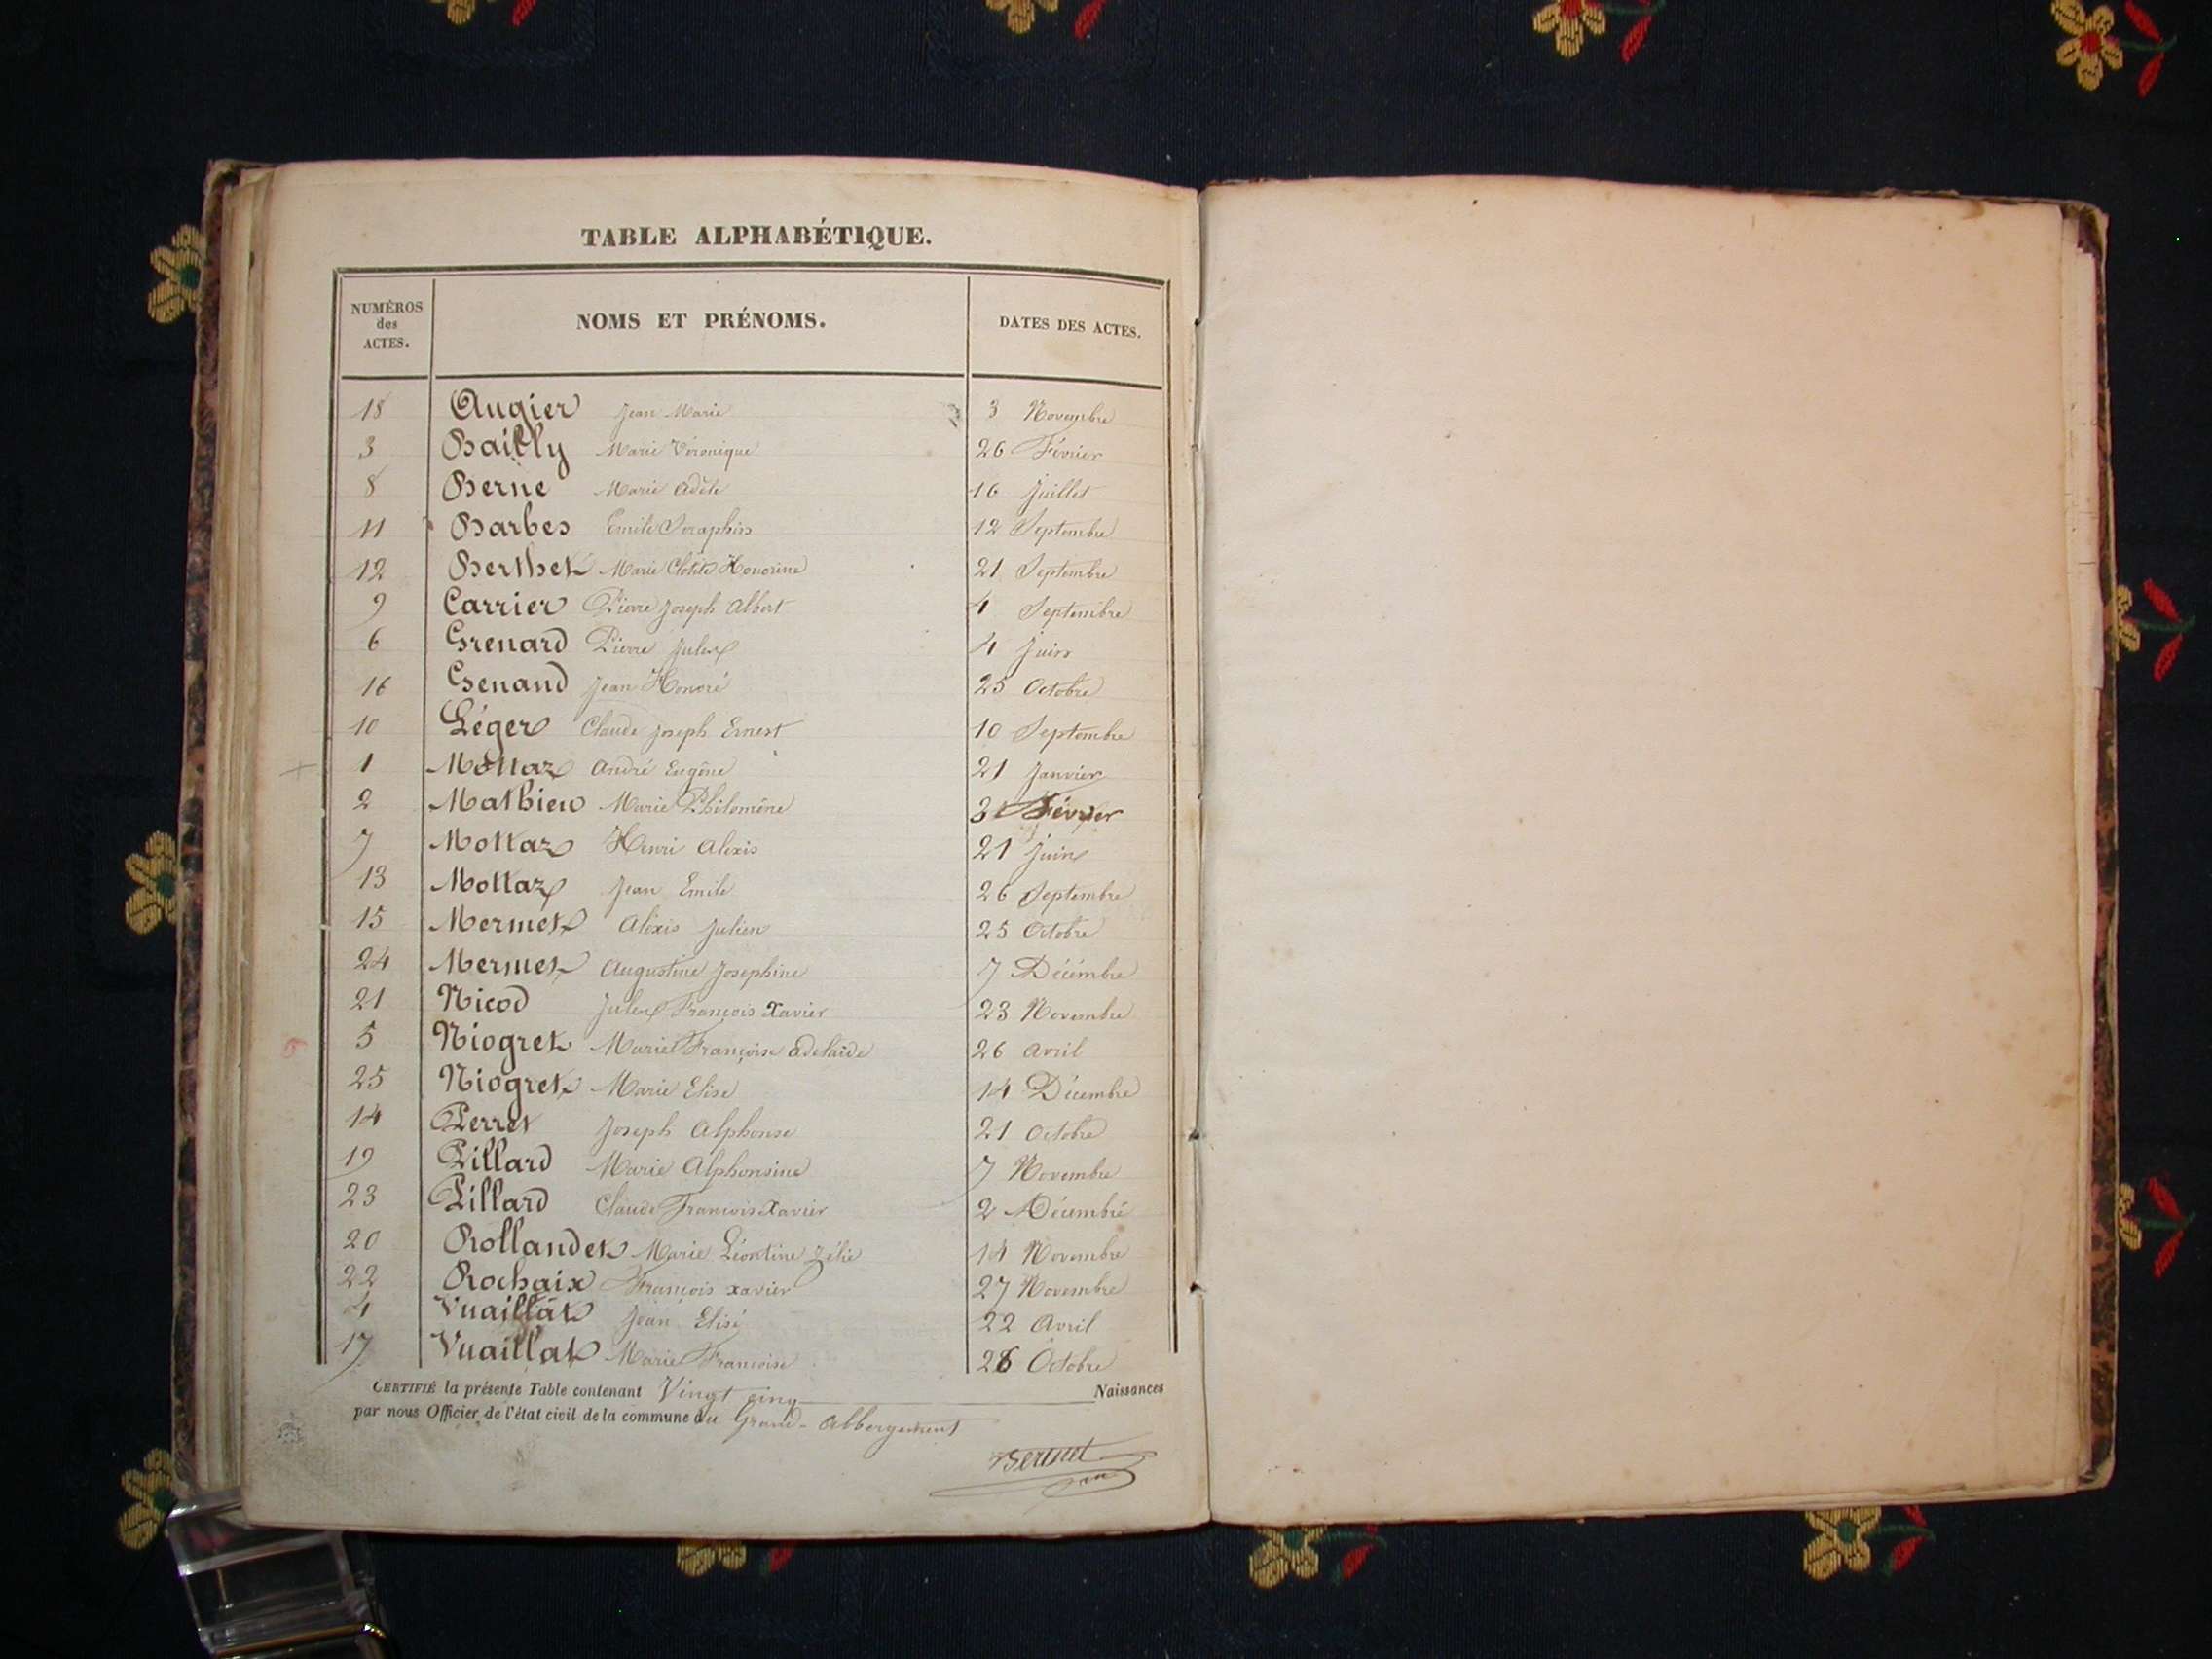 TABLE ALPHABÉTIQUE.
NUMÉROS des ACTES. NOMS ET PRÉNOMS. DATES DES ACTES.
18 Augier Jean Marie 3 Novembre
3 Bailly Marie Véronique 26 Février
8 Berne Marie Adèle 16 Juillet
11 Barbes Emile Séraphin 12 Septembre
12 Berthet Marie Clotilde Honorine 21 Septembre
9 Carrier Pierre Joseph Albert 4 Septembre
6 Grenard Pierre Jules 4 Juin
16 Genand Jean Honoré 25 Octobre
10 Léger Claude Joseph Ernest 10 Septembre
1 Mottaz André Eugène 21 Janvier
2 Mathieu Marie Philomène 3 Février
7 Mottaz Henri Alexis 21 Juin
13 Mottaz Jean Emile 26 Septembre
15 Mermet Alexis Julien 25 Octobre
24 Mermet Augustine Joséphine 7 Décembre
21 Nicod Jules François Xavier 23 Novembre
5 Niogret Marie Françoise Adelaïde 26 Avril
25 Niogret Marie Elise 14 Décembre
14 Perret Joseph Alphonse 21 Octobre
19 Pillard Marie Alphonsine 7 Novembre
23 Pillard Claude François Xavier 2 Décembre
20 Rollandet Marie Léontine Zélie 14 Novembre
22 Rochaix François Xavier 27 Novembre
4 Vuaillat Jean Elisé 22 Avril
17 Vuaillat Marie Françoise 26 Octobre
CERTIFIÉ la présente Table contenant Vingt cinq Naissances
par nous Officier de l'état civil de la commune du Grand-Abbergement
Berthet